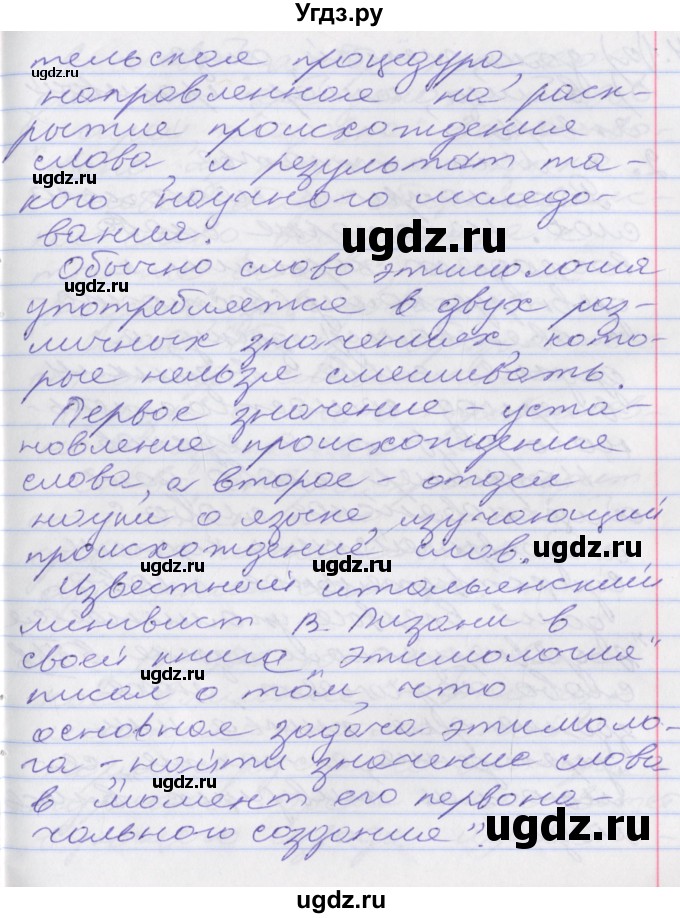 Угдз.ру
тельская процедура,
ugdz.ru
направленная на раск-
рытие происхождения
слова, и результат та-
ugdz.ru
кого научного исследо-
вания.
ugdz.ru
Обычно слово этимология
употребляется в двух раз-
личных значениях, кото-
ugdz.ru
рые нельзя смешивать.
Первое значение - уста-
новление происхождения
слова, а второе - отдел
науки о языке, изучающий
происхождение слов.
ugdz.ru
ugdz.ru
Известный итальянский
лингвист В. Пизани в
своей книга „этимология"
писал о том, что
основная задача этимоло-
га - найти значение слова
ugdz.ru
в "момент его первона-
чального создания".
ugdz.ru
ugdz.ru